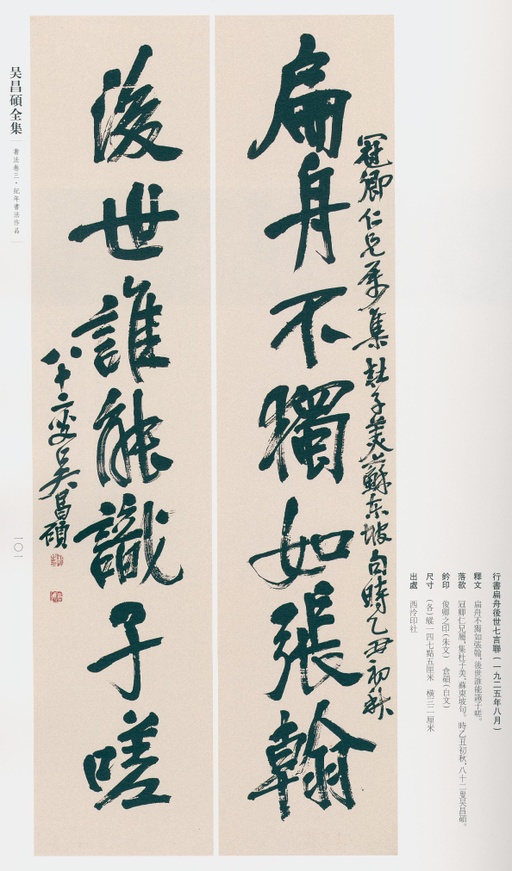 扁舟不獨如張翰
冠卿仁兄屬集杜子美蘇東坡句時乙丑初秋
後世誰能識子嗟
八十二叟吳昌碩
行書扁舟後世七言聯(一九二五年八月)
釋文 扁舟不獨如張翰,後世誰能識子嗟。
落款 冠卿仁兄屬,集杜子美、蘇東坡句。時乙丑初秋,八十二叟吳昌碩。
鈐印 俊卿之印(朱文) 倉碩(白文)
尺寸 (各)縱一四七點五厘米 橫三二厘米
出處 西泠印社
吴昌碩全集
書法卷三·紀年書法作品
一〇一